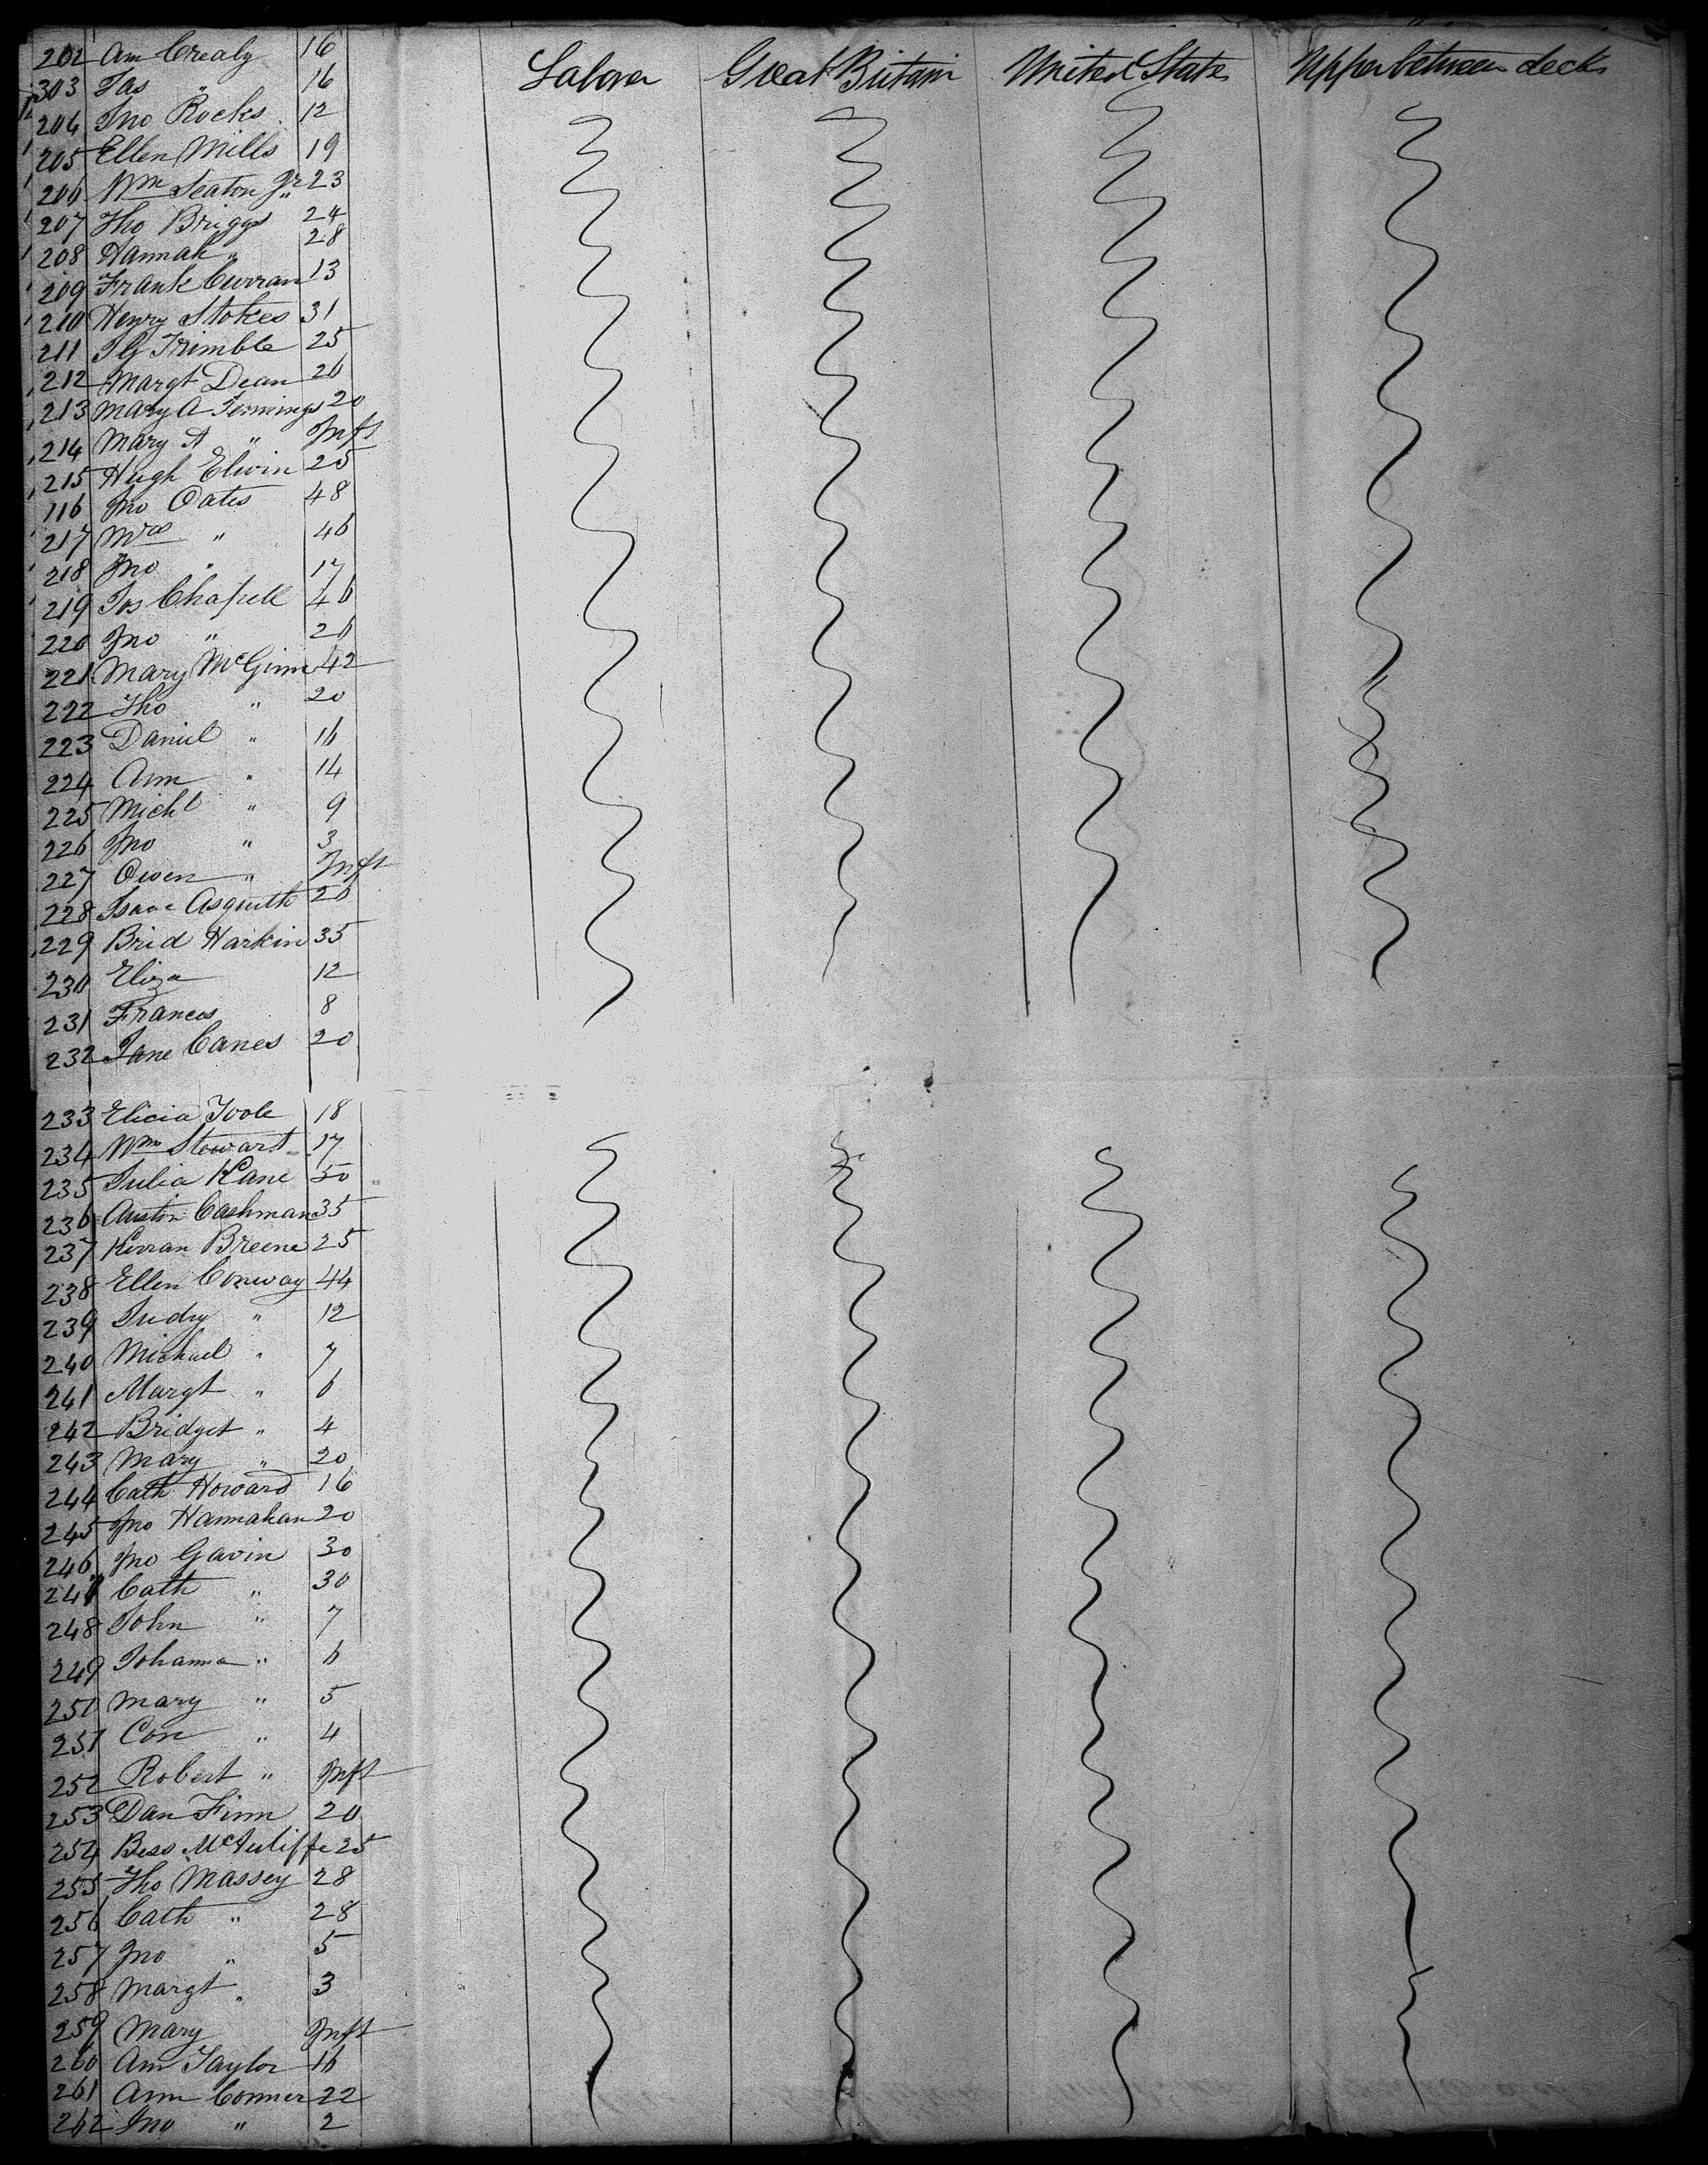 202 Ann Crealy 16 Labour Great Britain United States Upper between decks
303 Jas " 16
204 Jno Rocks 12
205 Ellen Mills 19
206 Wm Seaton Jr 23
207 Tho Briggs 24
208 Hannah " 28
209 Frank Curran 13
210 Henry Stokes 31
211 J G Trimble 25
212 Margt Dean 26
213 Mary A Jennings 20
214 Mary A " Inft
215 Hugh Elwin 25
116 Jno Oates 48
217 Mrs " 46
218 Jno " 17
219 Jos Chapell 46
220 Jno " 26
221 Mary McGinn 42
222 Tho " 20
223 Daniel " 16
224 Ann " 14
225 Michl " 9
226 Jno " 3
227 Owen " Inft
228 Isaac Asquith 26
229 Brid Harkin 35
230 Eliza 12
231 Frances 8
232 Jane Canes 20
233 Elicia Toole 18
234 Wm Stewart 17
235 Julia Kane 50
236 Austin Cashman 35
237 Kerran Breene 25
238 Ellen Conway 44
239 Judy " 12
240 Michael " 7
241 Margt " 6
242 Bridget " 4
243 Mary " 20
244 Cath Howard 16
245 Jno Hannahan 20
246 Jno Gavin 30
247 Cath " 30
248 John " 7
249 Johanna " 6
250 Mary " 5
251 Con " 4
252 Robert " Inft
253 Dan Finn 20
254 Bess McAuliffe 25
255 Tho Massey 28
256 Cath " 28
257 Jno " 5
258 Margt " 3
259 Mary Inft
260 Ann Taylor 16
261 Ann Conner 22
262 Jno " 2